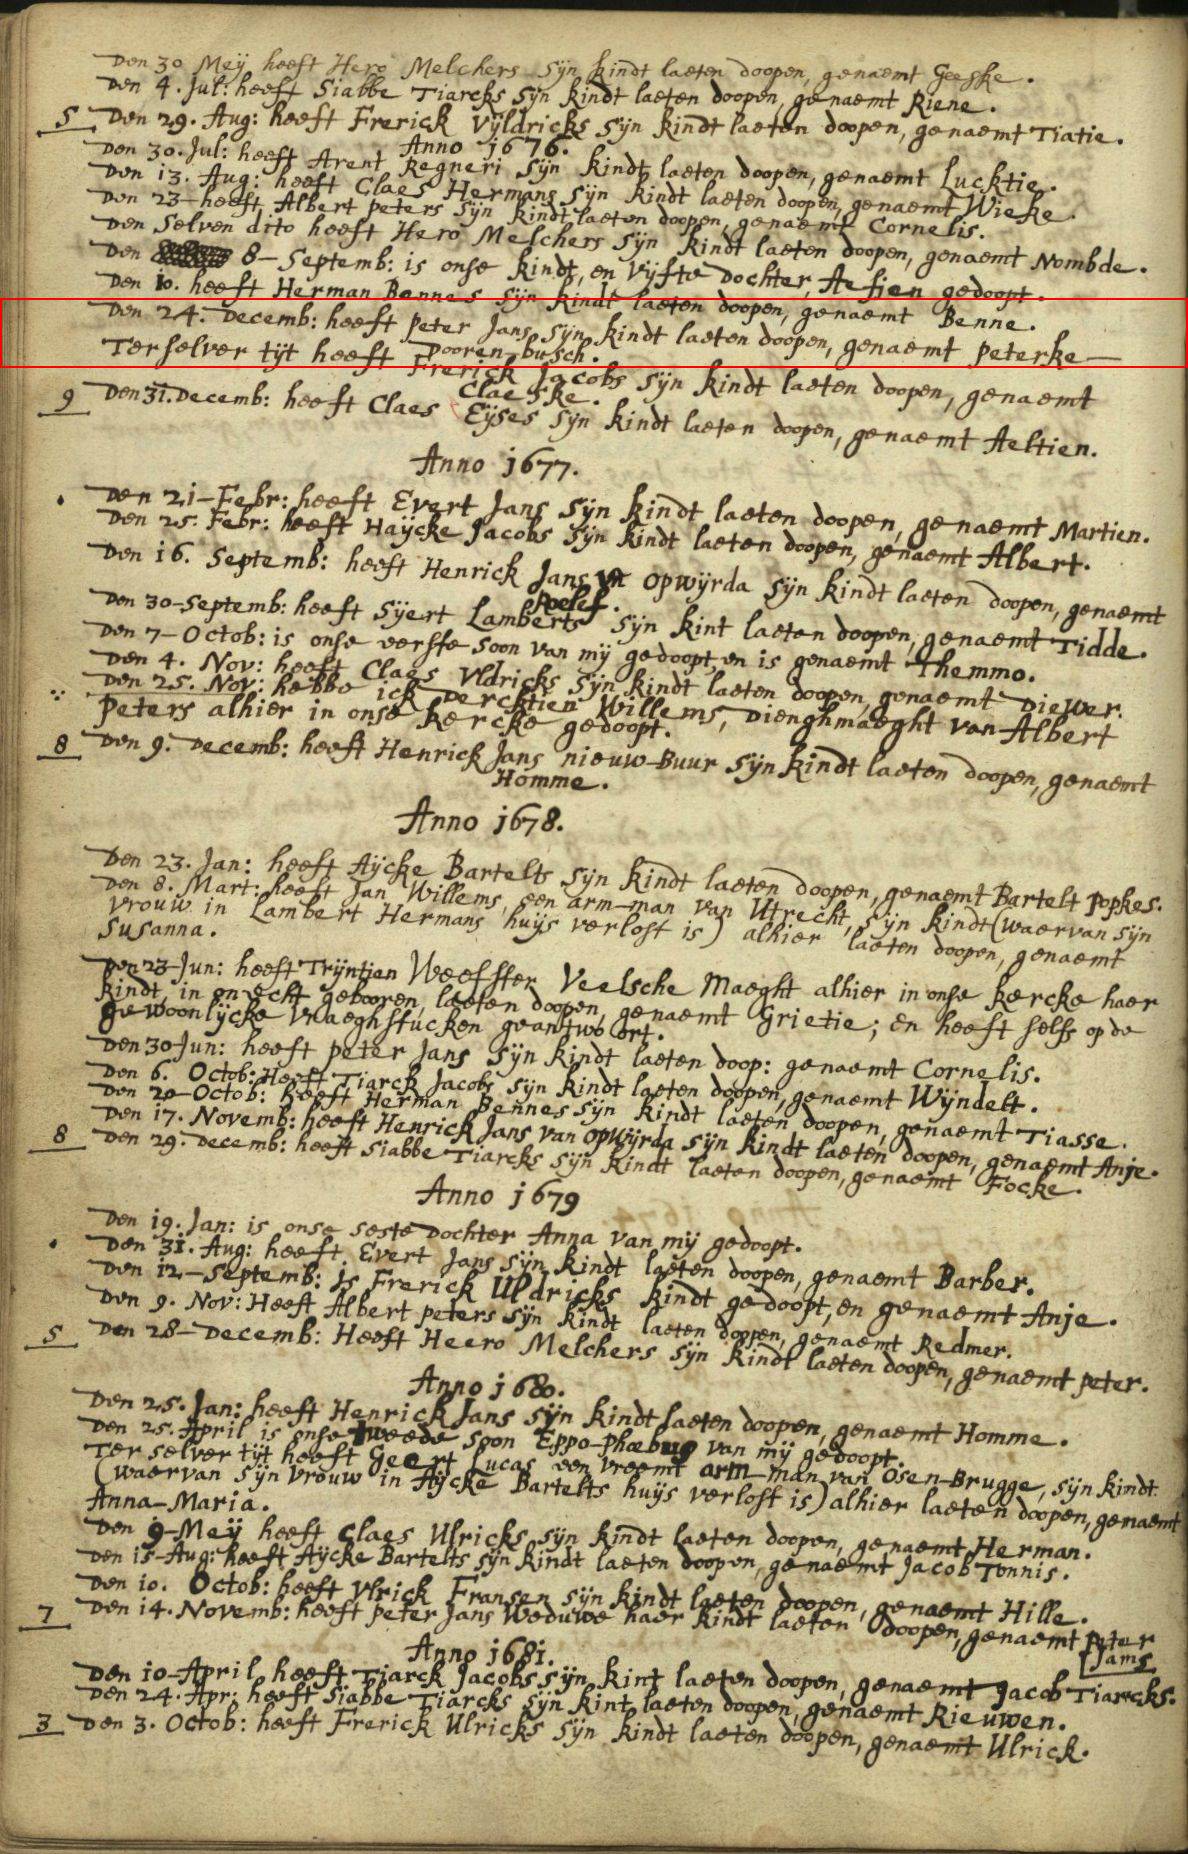 Den 30 Meÿ heeft Hero Melchers sÿn kindt laeten doopen, genaemt Geeske.
Den 4. Jul: heeft Siabbe Tiarcks sÿn kindt laeten doopen, genaemt Riene.
5 Den 29. Aug: heeft Frerick Vÿldricks sÿn kindt laeten doopen, genaemt Tiatie.
Anno 1676.
Den 30. Jul: heeft Arent Regneri sÿn kindt laeten doopen, genaemt Lucktie.
Den 13. Aug: heeft Claes Hermans sÿn kindt laeten doopen, genaemt Wieke.
Den 23 - heeft Albert peters sÿn kindt laeten doopen, genaemt Cornelis.
Den selven dito heeft Hero Melchers sÿn kindt laeten doopen, genaemt Nombde.
Den 8 - Septemb: is onse kindt, en vÿfte Dochter, Aefien gedoopt.
Den 10. heeft Herman Bennes sÿn kindt laeten doopen, genaemt Benne.
Den 24. Decemb: heeft peter Jans sÿn kindt laeten doopen, genaemt peterke —
Dooren-busch.
Terselver tÿt heeft Frerick Jacobs sÿn kindt laeten doopen, genaemt
Claeske.
9 Den 31. Decemb: heeft Claes Eÿses sÿn kindt laeten doopen, genaemt Aeltien.
Anno 1677.
Den 21 - Febr: heeft Evert Jans sÿn kindt laeten doopen, genaemt Martien.
Den 25. Febr: heeft Haÿcke Jacobs sÿn kindt laeten doopen, genaemt Albert.
Den 16. Septemb: heeft Henrick Jans opwÿrda sÿn kindt laeten doopen, genaemt
Roelef.
Den 30 - Septemb: heeft Sÿert Lamberts sÿn kint laeten doopen, genaemt Tidde.
Den 7 - Octob: is onse eerste soon van mÿ gedoopt, en is genaemt Themmo.
Den 4. Nov: heeft Claes Vldricks sÿn kindt laeten doopen, genaemt Diewer.
Den 25. Nov: hebbe ick Dercktien Willems, Dienghmaeght van Albert
Peters alhier in onse kercke gedoopt.
8 Den 9. Decemb: heeft Henrick Jans nieuw-Buur sÿn kindt laeten doopen, genaemt
Homme.
Anno 1678.
Den 23. Jan: heeft Aÿcke Bartelts sÿn kindt laeten doopen, genaemt Bartelt Popkes.
Den 8. Mart: heeft Jan Willems, een arm-man van Utrecht, sÿn kindt (waervan sÿn
vrouw in Lambert Hermans huÿs verlost is) alhier laeten doopen, genaemt
Susanna.
Den 23 - Jun: heeft Trÿntien Weefster Veelsche Maeght alhier in onse kercke haer
kindt, in onecht gebooren, laeten doopen, genaemt Grietie; en heeft selfs op de
gewoonlÿcke vraeghstucken geantwoort.
Den 30 - Jun: heeft peter Jans sÿn kindt laeten doop: genaemt Cornelis.
Den 6. Octob: Heeft Tiarck Jacobs sÿn kindt laeten doopen, genaemt Wÿndelt.
Den 20 - Octob: heeft Herman Bennes sÿn kindt laeten doopen, genaemt Tiasse.
Den 17. Novemb: heeft Henrick Jans van opwÿrda sÿn kindt laeten doopen, genaemt Anje.
8 Den 29. Decemb: heeft Siabbe Tiarcks sÿn kindt laeten doopen, genaemt Focke.
Anno 1679
Den 19. Jan: is onse seste Dochter Anna van mÿ gedoopt.
Den 31. Aug: heeft Evert Jans sÿn kindt laeten doopen, genaemt Barber.
Den 12 - Septemb: is Frerick Uldricks kindt gedoopt, en genaemt Anje.
Den 9. Nov: Heeft Albert peters sÿn kindt laeten doopen, genaemt Redmer.
5 Den 28 - Decemb: Heeft Heero Melchers sÿn kindt laeten doopen, genaemt peter.
Anno 1680.
Den 25. Jan: heeft Henrick Jans sÿn kindt laeten doopen, genaemt Homme.
Den 25. April is onse tweede soon Eppo-phœbus van mÿ gedoopt.
Ter selver tÿt heeft Geert Lucas een vreemt arm-man van Osen-Brugge, sÿn kindt
(waervan sÿn vrouw in Aÿcke Bartelts huÿs verlost is) alhier laeten doopen, genaemt
Anna-Maria.
Den 9 - Meÿ heeft Claes Ulricks sÿn kindt laeten doopen, genaemt Herman.
Den 15 - Aug: heeft Aÿcke Bartelts sÿn kindt laeten doopen, genaemt Jacob Tonnis.
Den 10. Octob: heeft Vlrick Fransen sÿn kindt laeten doopen, genaemt Hille.
7 Den 14. Novemb: heeft peter Jans Weduwe haer kindt laeten doopen, genaemt Peter
Jams
Anno 1681.
Den 10 - April heeft Tiarck Jacobs sÿn kint laeten doopen, genaemt Jacob Tiarcks.
Den 24. Apr: heeft Siabbe Tiarcks sÿn kint laeten doopen, genaemt Rieuwen.
3 Den 3. Octob: heeft Frerick Ulricks sÿn kindt laeten doopen, genaemt Ulrick.